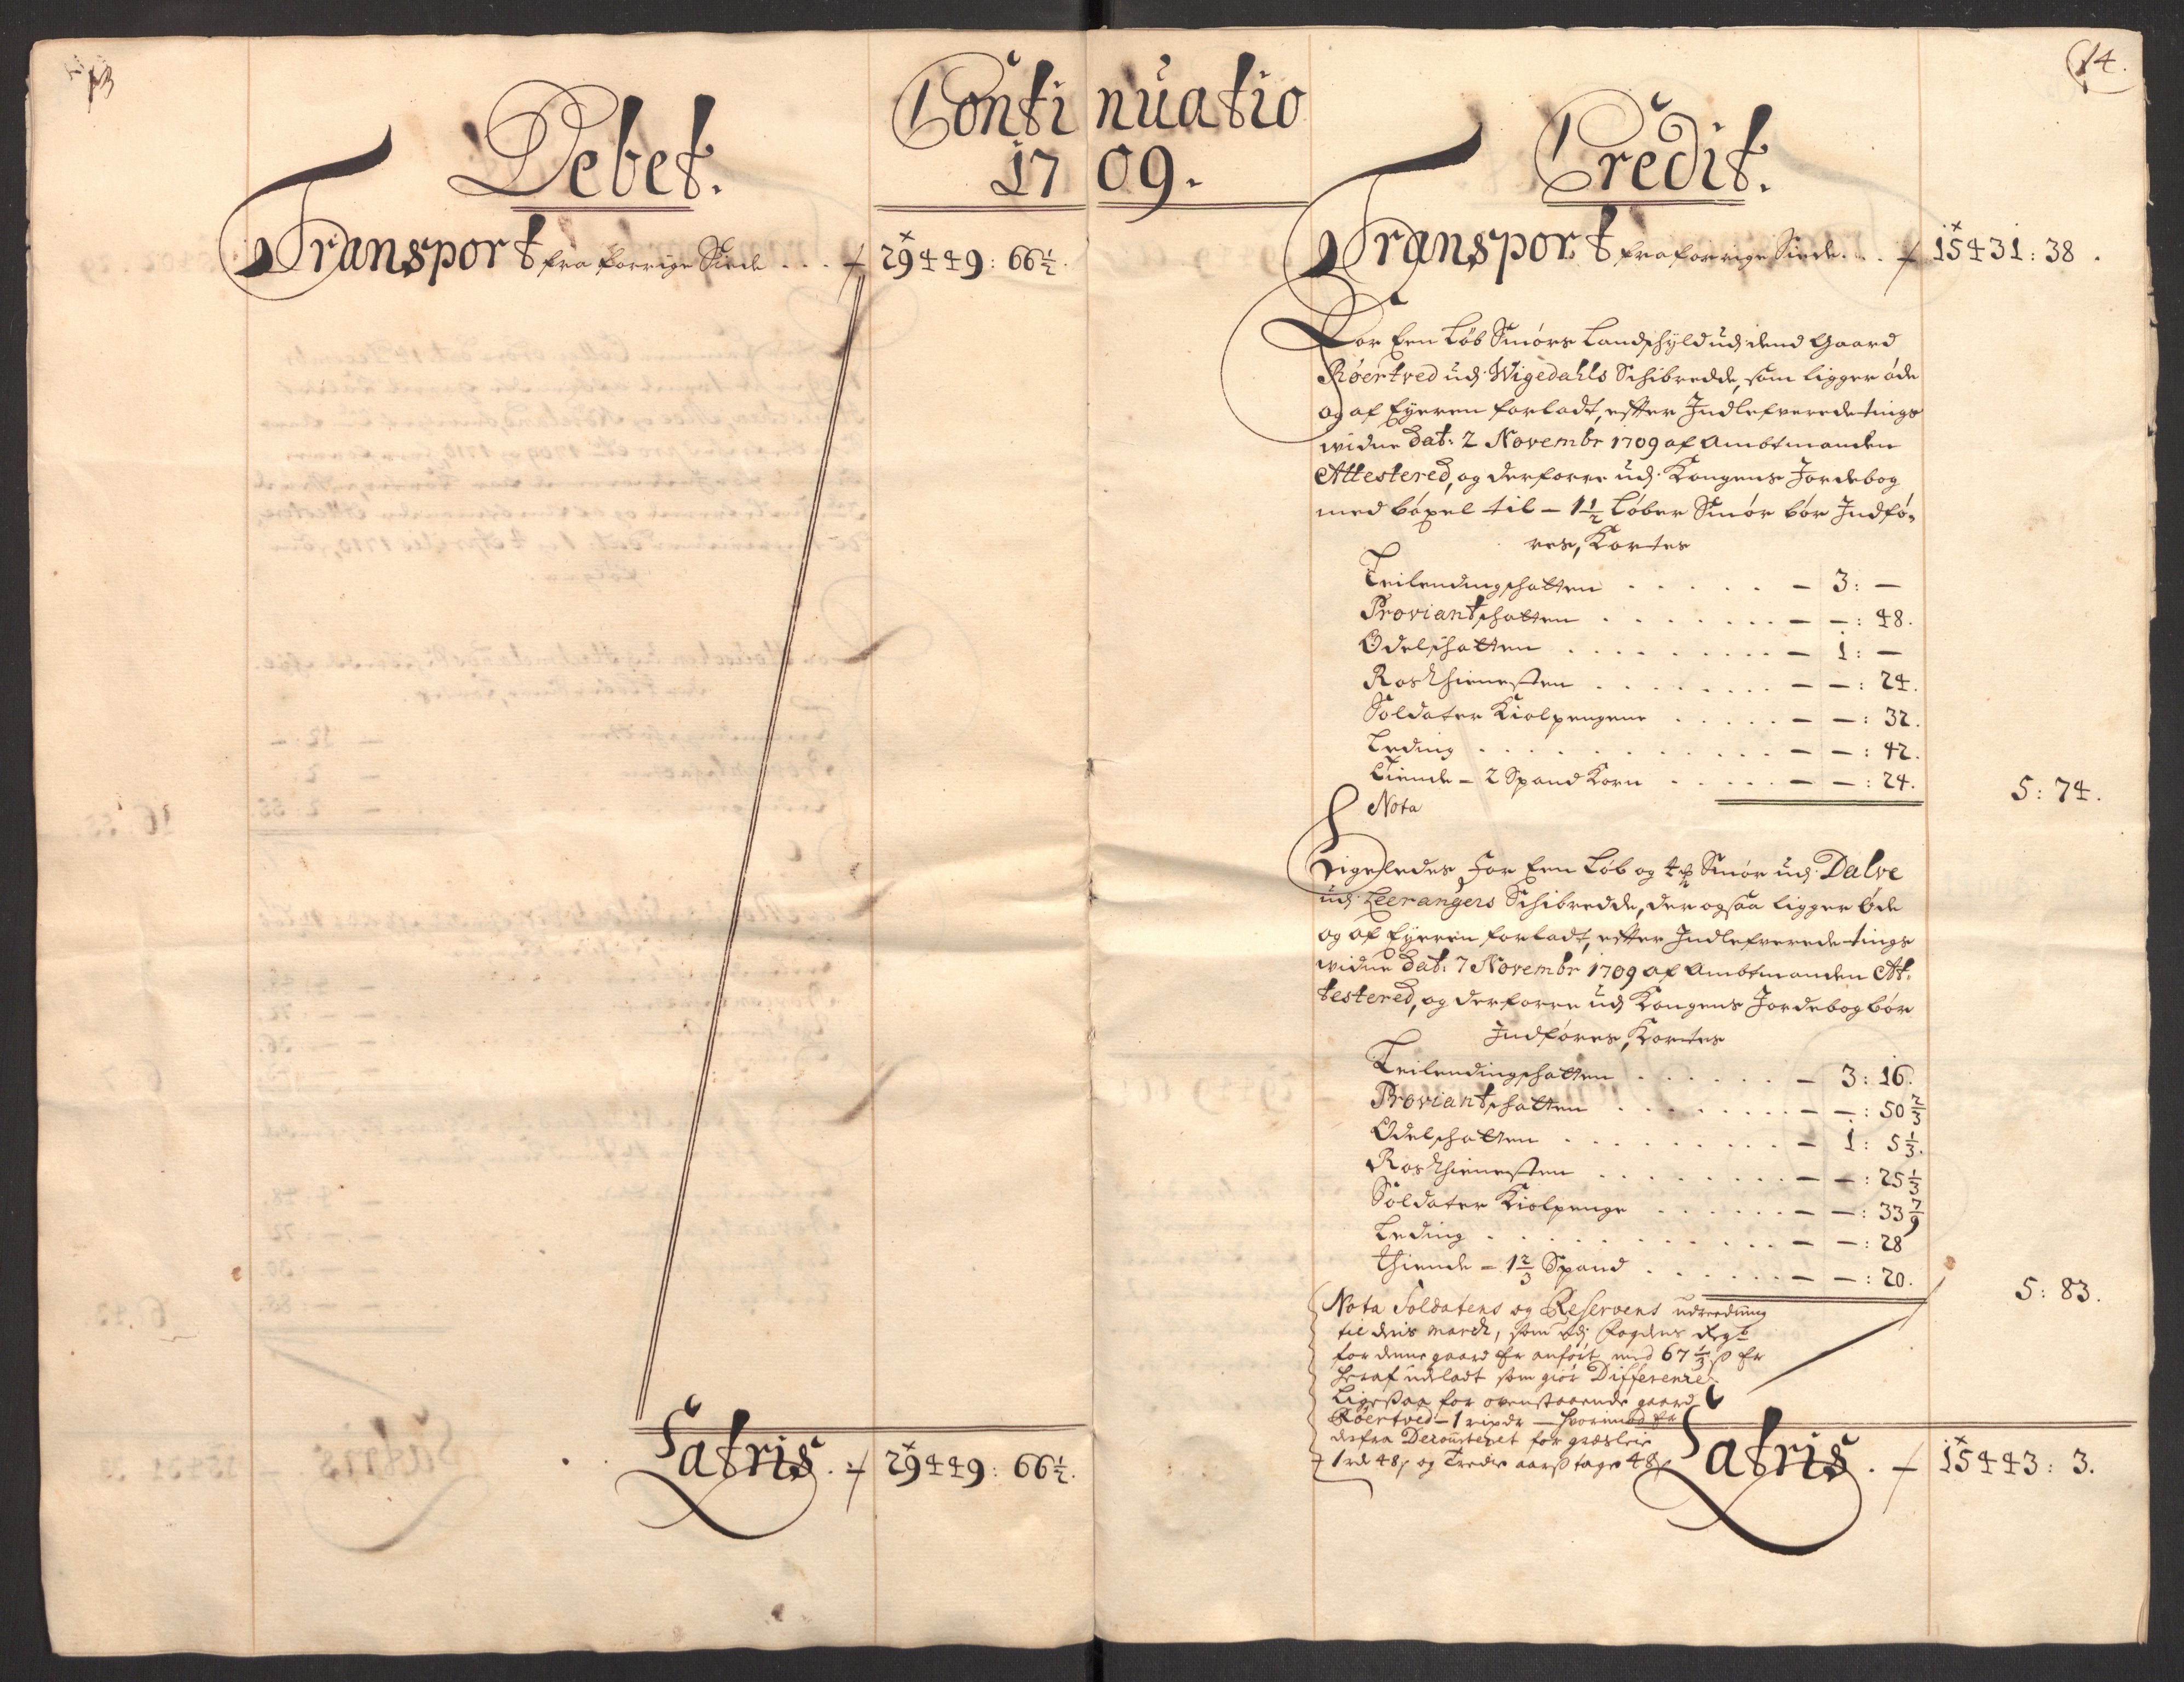 13
Continuatio
1709.
Debet.
Transport fra forrige Siide . . . 29449: 66½.
Latris. 29449: 66½.
14.
Credit.
Transport fra forrige Siide. . . 15431: 38.
For Een Løb Smørs Landschyld udj dend Gaard
Røertved udj Wigedahls Schibredde, som ligger øde
og af Eyeren forladt, efter Indlefverede tings
widne Dat: 2 Novembr 1709 af Ambtmanden
Attestered, og derforre udj Kongens Jordebog
med bøxel til - 1½ Løber Smør bør Indfø-
res, Kortes
Leilendingschatten . . . . . — 3: —
Proviantschatten . . . . . . — —: 48.
Odelschatten . . . . . . . — 1: —
Rosthienesten . . . . . . — —: 24.
Soldater Kiolpengene . . . . . — —: 32.
Leding . . . . . . . . . — —: 42.
Tiende - 2 Spand Korn . . . . . — —: 24.
5: 74.
Nota
Ligeledes For Een Løb og ½ Smør udj Dalve
udj Leerangers Schibredde, der ogsaa ligger Øde
og af Eyeren forladt, efter Indlefverede tings
widne Dat: 7 Novembr 1709 af Ambtmanden At-
testered, og derforre udj Kongens Jordebog bør
Indføres, Kortes
Leilendingschatten . . . . . — 3: 16.
Proviantschatten . . . . . . — —: 50⅔
Odelschatten . . . . . . . — 1: 5⅓.
Rosthienesten . . . . . . — —: 25⅓
Soldater Kiolpenge . . . . . — —: 33 7/9
Leding . . . . . . . . . — —: 28
Thiende - 1⅔ Spand . . . . . — —: 20.
5: 83.
Nota Soldatens og Reservens udreedning
til deris march, som udj Fogdens Regb
for denne gaard Er anført med 67⅓ ß Er
heraf udeladt som giør Difference
Ligesaa for ovenstaaende gaard
Røertved - 1 rixdr - hvorimod Er
derfra Decourteret for græsleie
1 rd 48 ß og Tredie aarß tage 48 ß
Latris. 15443: 3.